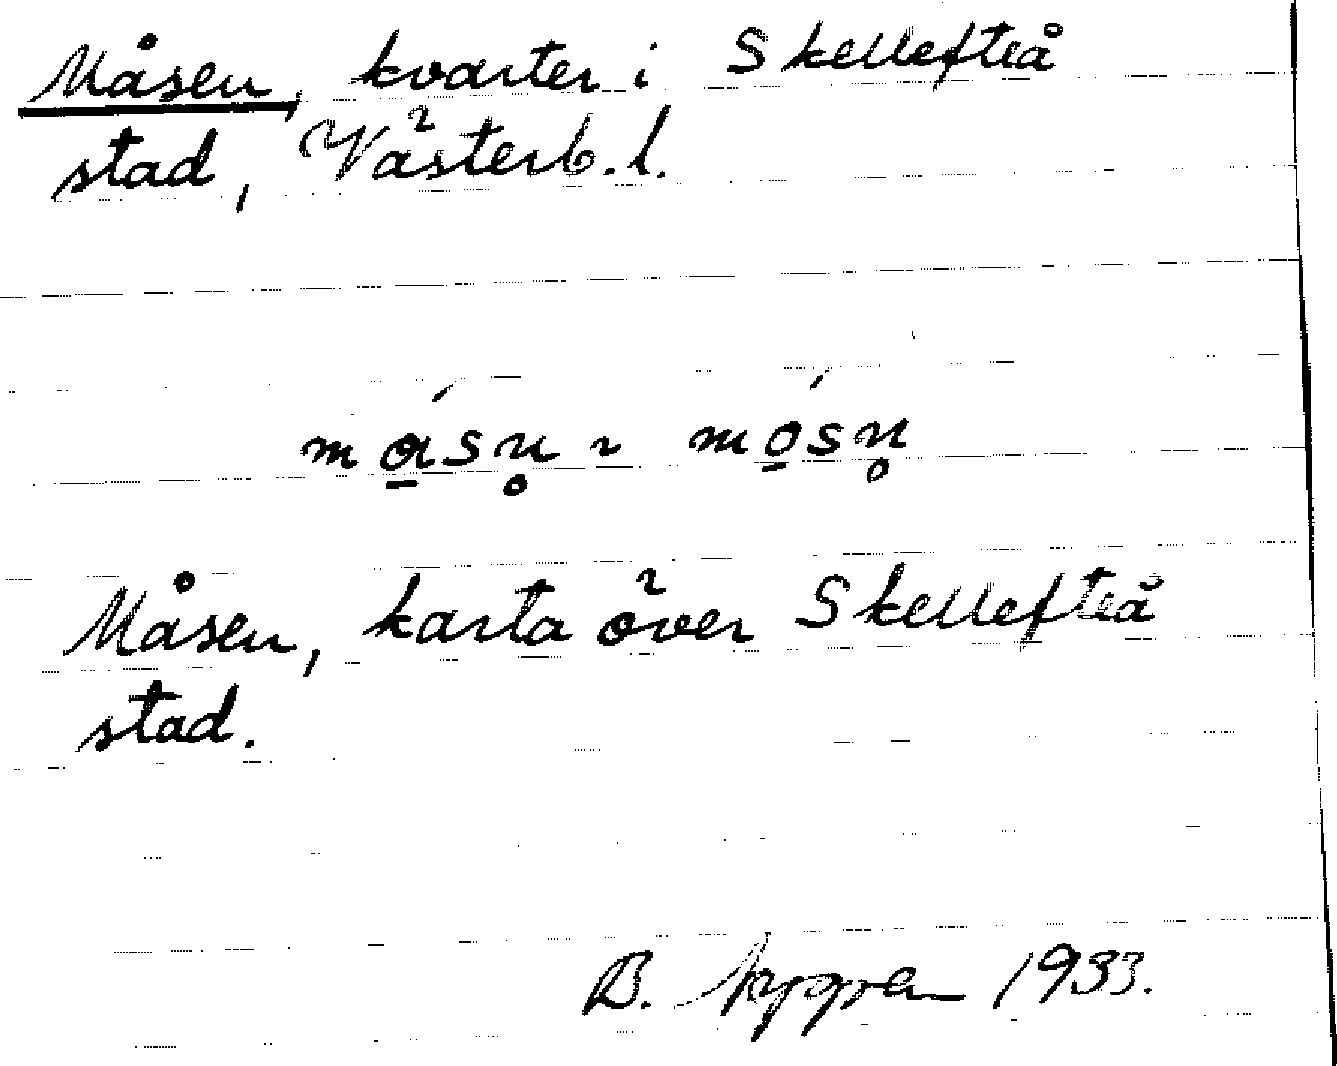 Måsen, kvarter i Skellefteå
stad, Västerb. l.
má̱sn̥ ~ mó̱sn̥
Måsen, karta över Skellefteå
stad.
B. Nygren 1933.